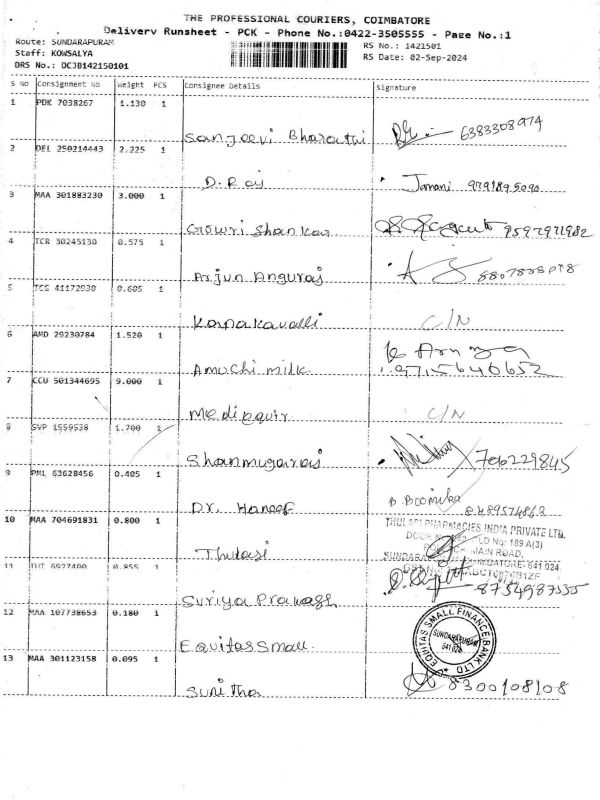 THE PROFESSIONAL COURIERS, COIMBATORE
Delivery Runsheet - PCK - Phone No.:0422-3505555 - Page No.:1
Route: SUNDARAPURAM
RS No.: 1421501
Staff: KOWSALYA
RS Date: 02-Sep-2024
DRS No.: DCJB142150101
S NO Consignment No Weight PCS Consignee Details Signature
1 PDK 7038267 1.130 1
Sanjeevi Bharathi 6383308974
2 DEL 250214443 2.225 1
D. Raj Janani 9791895090
3 MAA 301883230 3.000 1
Gowri Shankar 9597971982
4 TCR 30245130 0.575 1
Arjun Anguraj
5 TCG 41172930 0.605 1
Karpakavalli C/N
6 AMD 29230784 1.520 1
Amuchi milk 9715646652
7 CCU 501344695 9.000 1
Mediequir C/N
8 SVP 1559538 1.700 1
Shanmugaraj 706229845
9 PNL 63628456 0.405 1
Dr. Haneef B. Boomika
10 MAA 704691831 0.800 1
THULASI PHARMACIES INDIA PRIVATE LTD.
Thulasi
11 6927400 0.855 1
Suriya Prakash 8754987535
12 MAA 107738653 0.180 1
Equitas Small
EQUITAS SMALL FINANCE BANK LTD
SUNDARAPURAM
13 MAA 301123158 0.095 1
Sunitha 8300108108